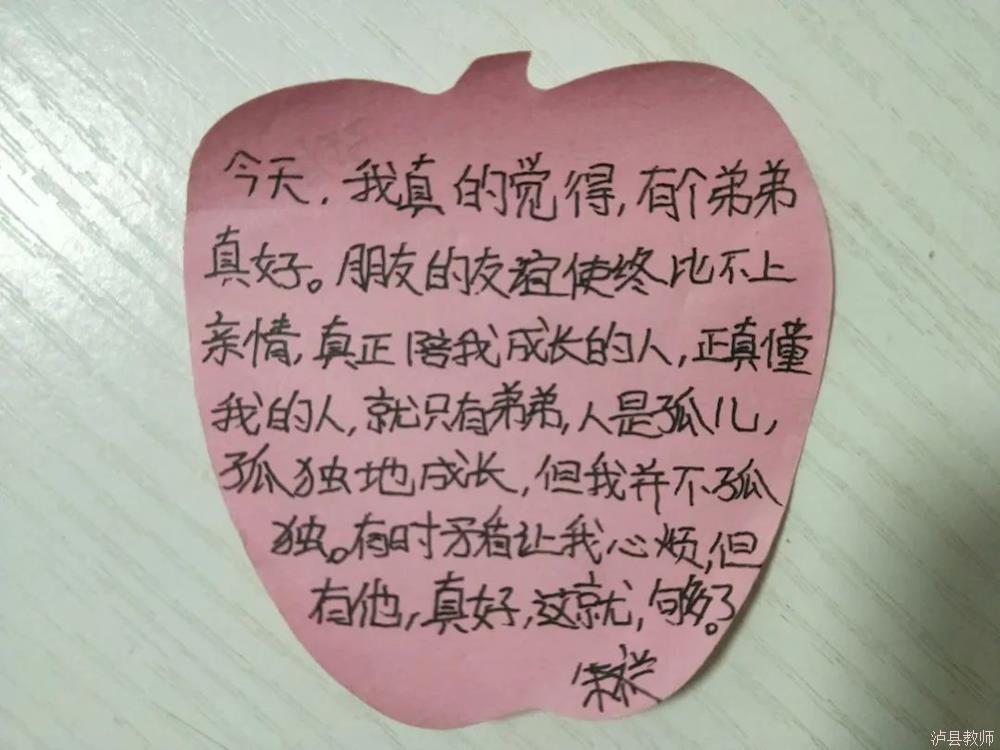 今天，我真的觉得，有个弟弟
真好。朋友的友谊使终比不上
亲情，真正陪我成长的人，正真懂
我的人，就只有弟弟，人是孤儿，
孤独地成长，但我并不孤
独。有时矛盾让我心烦，但
有他，真好，这就，够了。
泸县教师